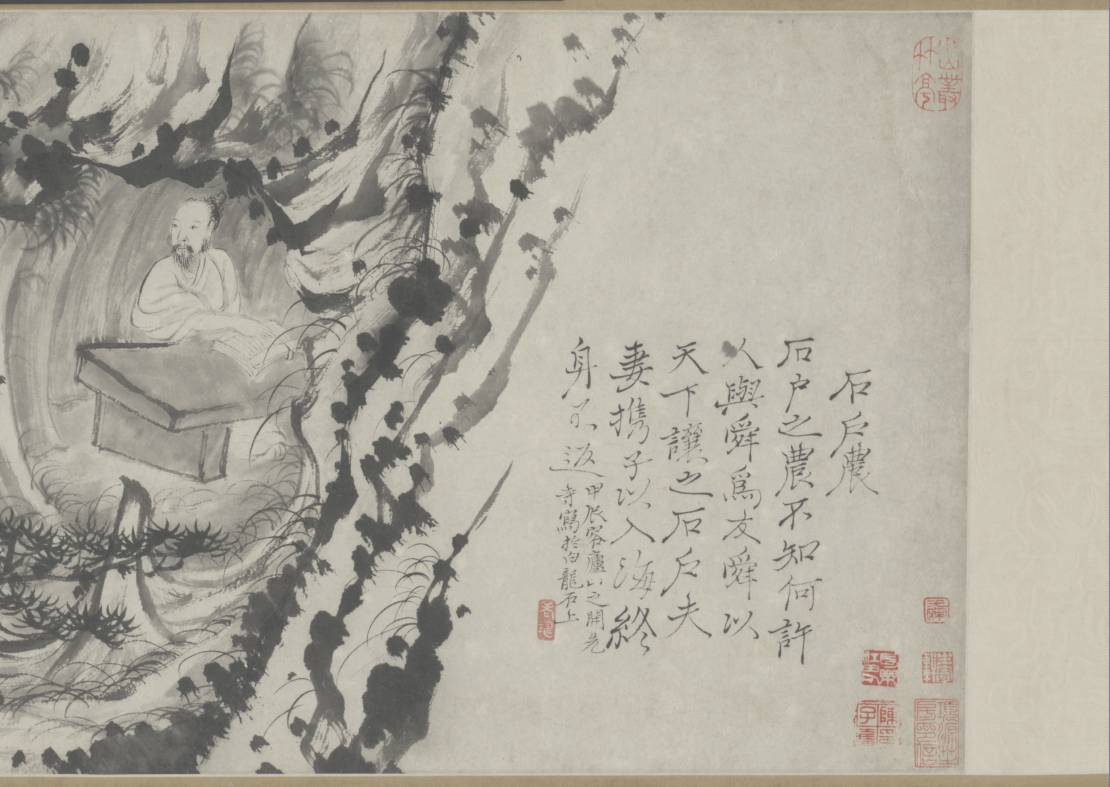 石戶農
石戶之農不知何許
人與舜爲友舜以
天下讓之石戶夫
妻携子以入海終
身不返
甲辰客廬山之開先
寺寫於白龍石上